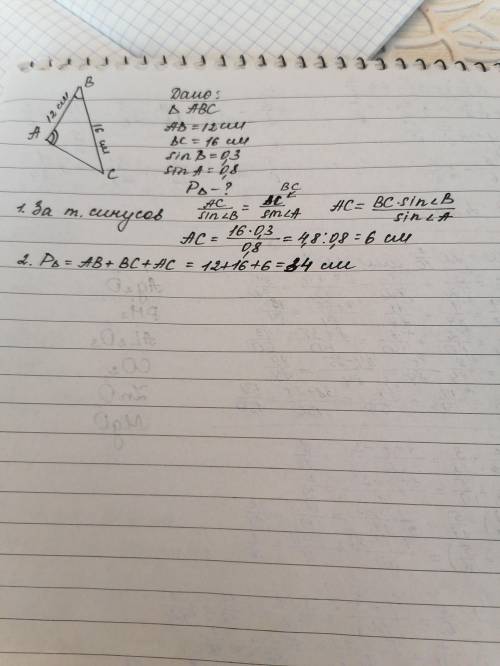 B
12 см
A
16 см
C
Дано:
Δ ABC
AB = 12 см
BC = 16 см
sin B = 0,3
sin A = 0,8
PΔ - ?
1. За т. синусов AC/sin∠B = BC/sin∠A AC = BC·sin∠B/sin∠A
BC
AC = 16·0,3/0,8 = 4,8:0,8 = 6 см
2. PΔ = AB + BC + AC = 12+16+6 = 34 см